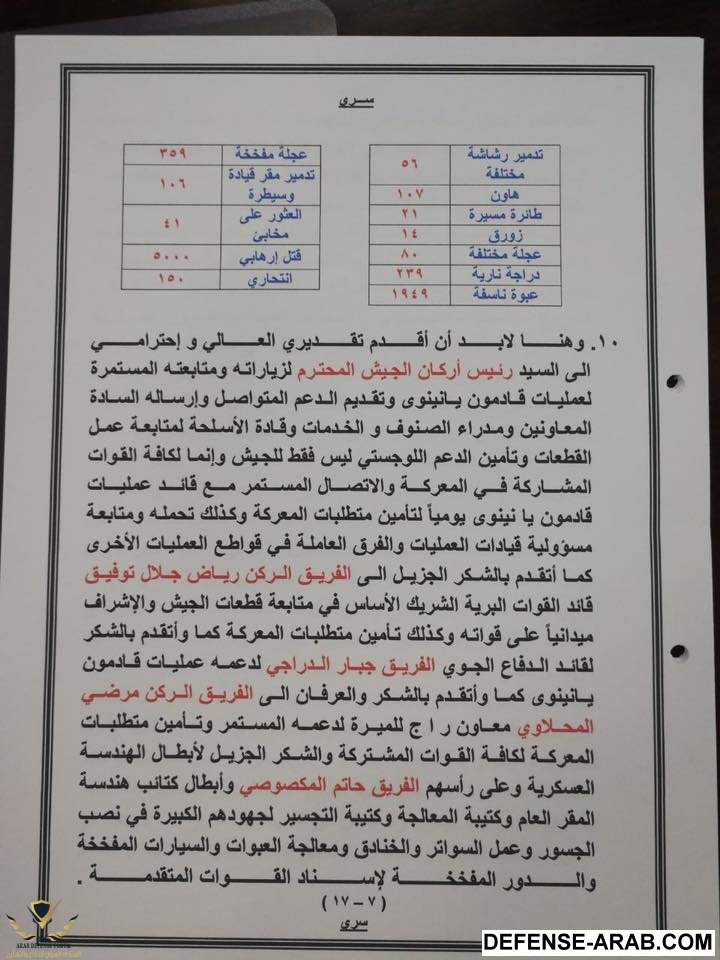 سرى
تدمير رشاشة مختلفة ٥٦
هاون ١٠٧
طائرة مسيرة ٢١
زورق ١٤
عجلة مختلفة ٨٠
دراجة نارية ٢٣٩
عبوة ناسفة ١٩٤٩
عجلة مفخخة ٣٥٩
تدمير مقر قيادة وسيطرة ١٠٦
العثور على مخابئ ٤١
قتل إرهابي ٥٠٠٠
انتحاري ١٥٠
١٠. وهنا لابد أن أقدم تقديري العالي و إحترامي
الى السيد رئيس أركان الجيش المحترم لزياراته ومتابعته المستمرة
لعمليات قادمون يانينوى وتقديم الدعم المتواصل وإرساله السادة
المعاونين ومدراء الصنوف و الخدمات وقادة الأسلحة لمتابعة عمل
القطعات وتأمين الدعم اللوجستي ليس فقط للجيش وإنما لكافة القوات
المشاركة في المعركة والاتصال المستمر مع قائد عمليات
قادمون يا نينوى يومياً لتأمين متطلبات المعركة وكذلك تحمله ومتابعة
مسؤولية قيادات العمليات والفرق العاملة في قواطع العمليات الأخرى
كما أتقدم بالشكر الجزيل الى الفريق الركن رياض جلال توفيق
قائد القوات البرية الشريك الأساس في متابعة قطعات الجيش والإشراف
ميدانياً على قواته وكذلك تأمين متطلبات المعركة كما وأتقدم بالشكر
لقائد الدفاع الجوي الفريق جبار الدراجي لدعمه عمليات قادمون
يانينوى كما وأتقدم بالشكر والعرفان الى الفريق الركن مرضي
المحلاوي معاون ر ا ج للميرة لدعمه المستمر وتأمين متطلبات
المعركة لكافة القوات المشتركة والشكر الجزيل لأبطال الهندسة
العسكرية وعلى رأسهم الفريق حاتم المكصوصي وأبطال كتائب هندسة
المقر العام وكتيبة المعالجة وكتيبة التجسير لجهودهم الكبيرة في نصب
الجسور وعمل السواتر والخنادق ومعالجة العبوات والسيارات المفخخة
والدور المفخخة لإسناد القوات المتقدمة .
( ٧ – ١٧ )
سرى
ARAB DEFENSE FORUM
DEFENSE-ARAB.COM